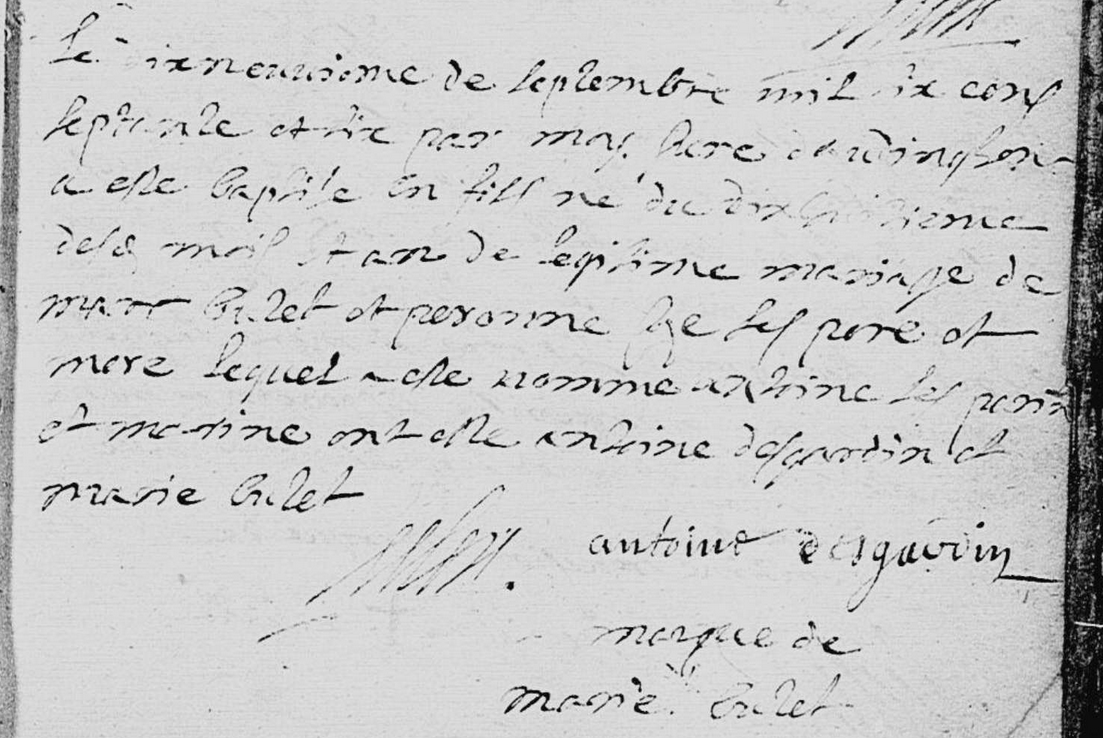 Le dixneuvieme de septembre mil six cens
septante et six par moy Cure
a este baptise un fils né du dixhuitieme
desd mois et an de legitime mariage de
marc bulet et peronne ses pere et
mere lequel a este nomme antoine les parin
et marine ont este antoine desgardin et
marie bulet
antoine desgardin
marque de
marie bulet